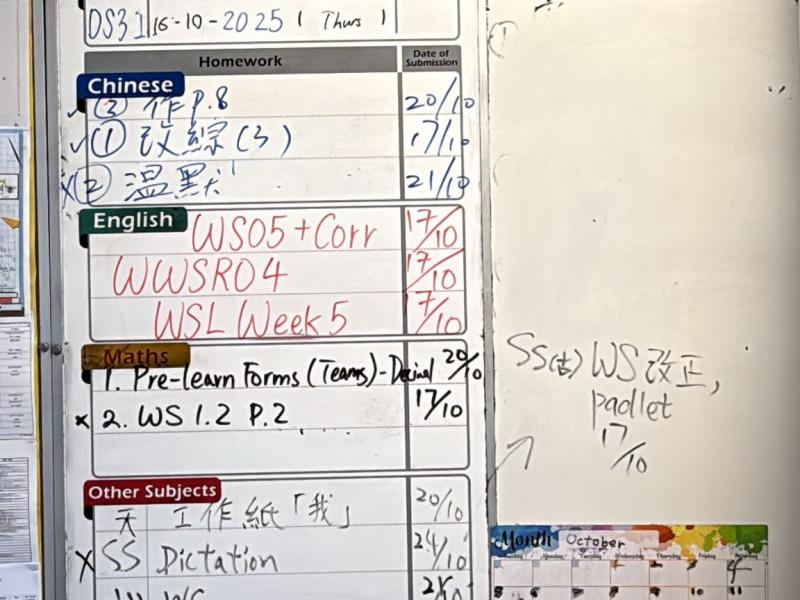 DS3I 16-10-2025 ( Thurs )
Homework Date of Submission
Chinese
③ 作 P.8 20/10
① 改綜(3) 17/10
② 溫默 21/10
English
WS05+Corr 17/10
WWSR04 17/10
WSL Week 5 17/10
Maths
1. Pre-learn Forms (Teams)- 20/10
2. WS 1.2 P.2 17/10
Other Subjects
工作紙「我」 20/10
SS Dictation 24/10
SS WS 改正,
padlet
17/10
Month October
Wednesday Thursday Friday Saturday
1 2 3 4